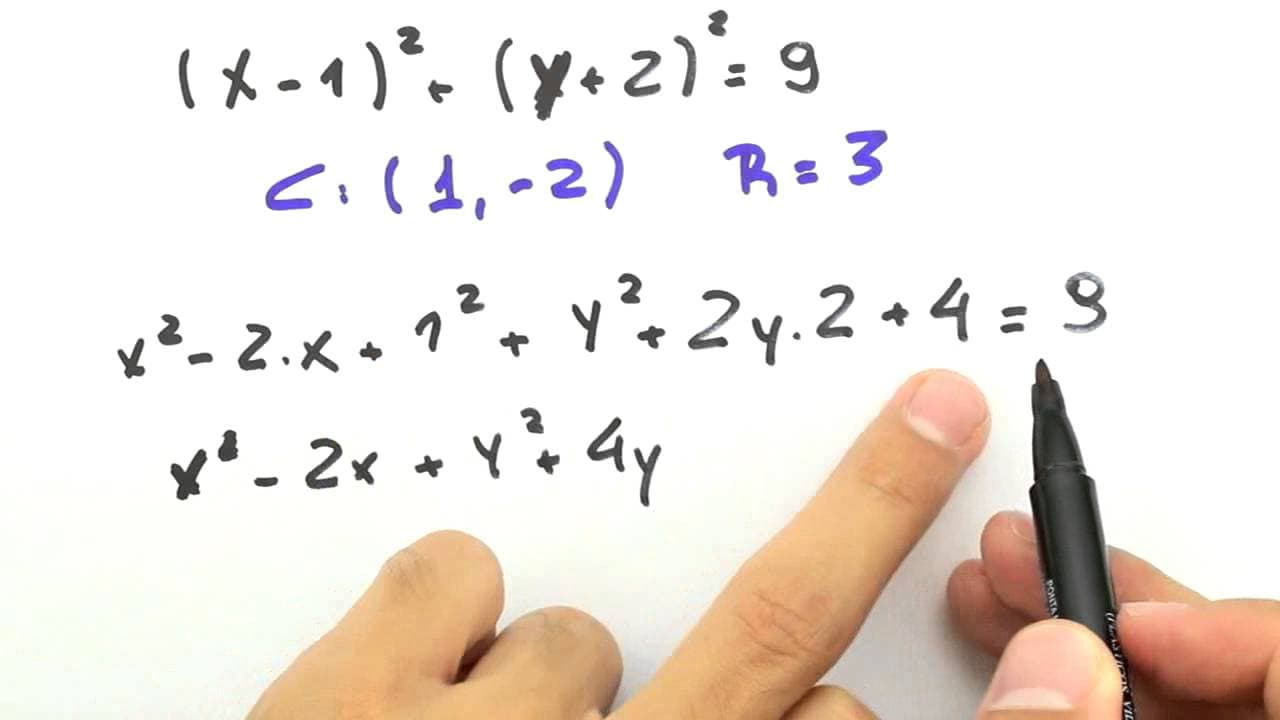 (x-1)² + (y+2)² = 9
C: (1,-2) R=3
x² - 2.x + 1² + y² + 2y.2 + 4 = 9
x² - 2x + y² + 4y